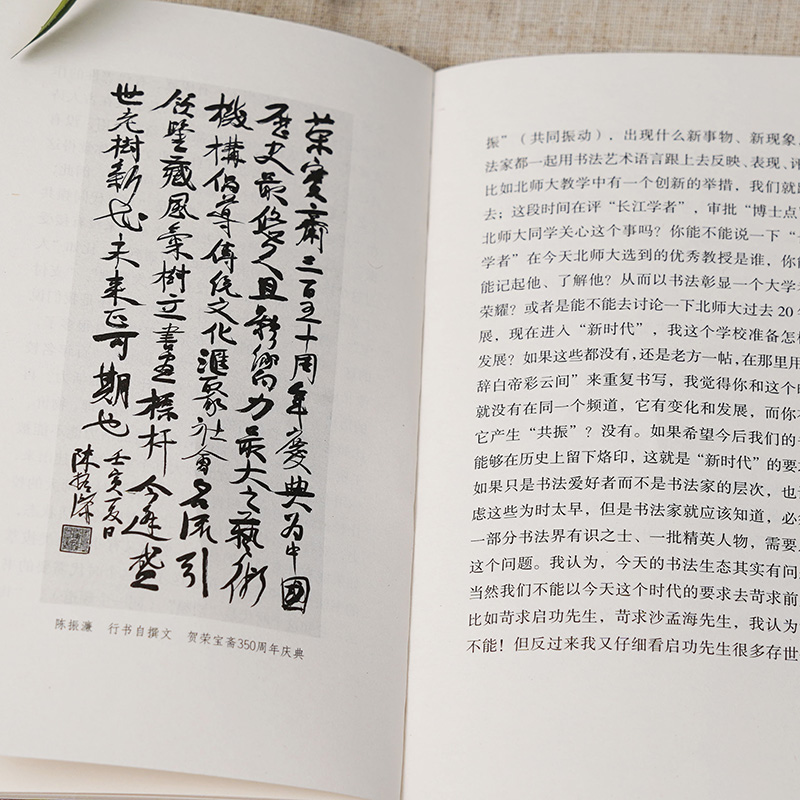 荣寶齋三百五十周年慶典为中國
歷史最悠久且影响力最大之藝術
機構倡導傳統文化滙聚社會名流引
領鑒藏風氣樹立書畫標杆今逢盛
世老樹新花未来正可期也
壬寅夏日
陈振濂
陈振濂 行书自撰文 贺荣宝斋350周年庆典
振”（共同振动），出现什么新事物、新现象，
法家都一起用书法艺术语言跟上去反映、表现、评
比如北师大教学中有一个创新的举措，我们就
去；这段时间在评“长江学者”，审批“博士点”
北师大同学关心这个事吗？你能不能说一下“
学者”在今天北师大选到的优秀教授是谁，你能
能记起他、了解他？从而以书法彰显一个大学
荣耀？或者是能不能去讨论一下北师大过去 20
展，现在进入“新时代”，我这个学校准备怎
发展？如果这些都没有，还是老方一帖，在那里用
辞白帝彩云间”来重复书写，我觉得你和这个时
就没有在同一个频道，它有变化和发展，而你
它产生“共振”？没有。如果希望今后我们的
能够在历史上留下烙印，这就是“新时代”的要
如果只是书法爱好者而不是书法家的层次，也
虑这些为时太早，但是书法家就应该知道，必
一部分书法界有识之士、一批精英人物，需要
这个问题。我认为，今天的书法生态其实有问
当然我们不能以今天这个时代的要求去苛求前
比如苛求启功先生，苛求沙孟海先生，我认为
不能！但反过来我又仔细看启功先生很多存世